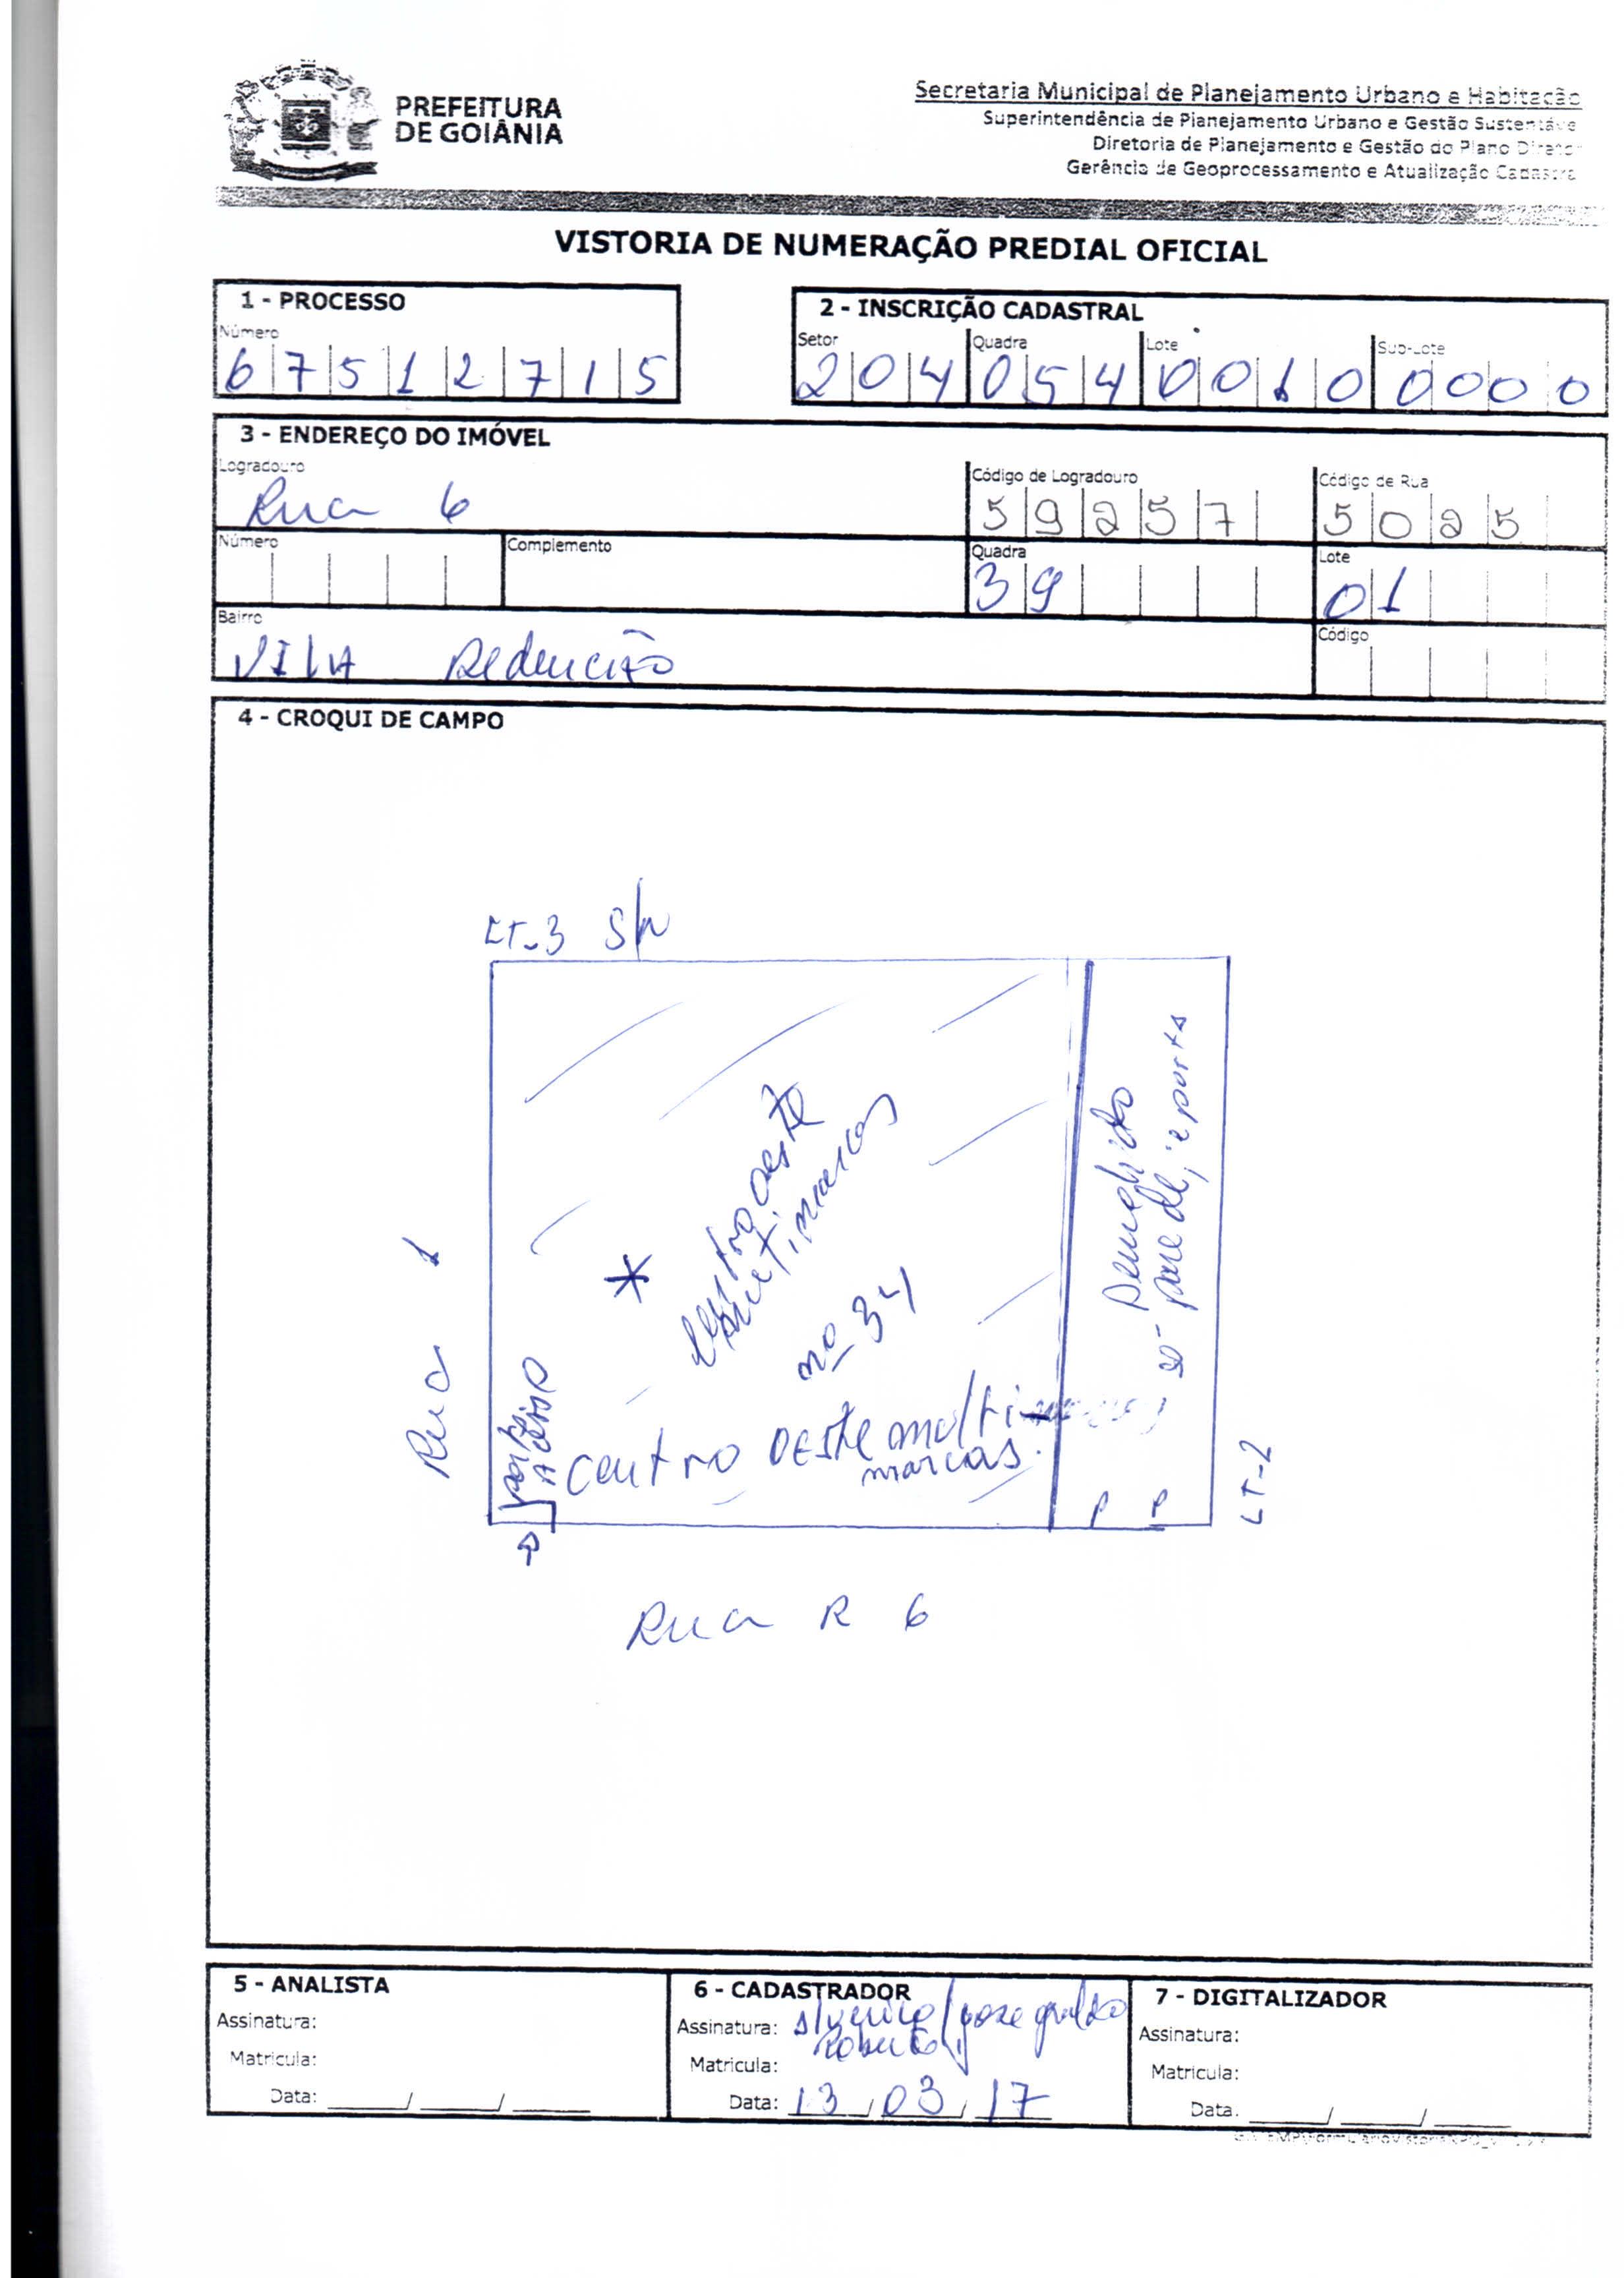 PREFEITURA
DE GOIÂNIA
Secretaria Municipal de Planejamento Urbano e Habitação
Superintendência de Planejamento Urbano e Gestão Sustentáve
Diretoria de Planejamento e Gestão do Plano Diretor
Gerência de Geoprocessamento e Atualização Cadastra
VISTORIA DE NUMERAÇÃO PREDIAL OFICIAL
1 - PROCESSO
Número
6 7 5 1 2 7 1 5
2 - INSCRIÇÃO CADASTRAL
Setor Quadra Lote Sub-Lote
2 0 4 0 5 4 0 0 1 0 0 0 0 0
3 - ENDEREÇO DO IMÓVEL
Logradouro Código de Logradouro Código de Rua
Rua 6 5 9 2 5 7 5 0 2 5
Número Complemento Quadra Lote
3 9 0 1
Bairro Código
VILA Redencão
4 - CROQUI DE CAMPO
LT-3 S/N
Rua 1
*
centro oeste
multimarcas
nº 34
Demolido
parede, e porta
portão
Acesso
centro oeste multi
marcas.
P P
LT-2
Rua R 6
5 - ANALISTA
Assinatura:
Matricula:
Data: / /
6 - CADASTRADOR
Assinatura:
Roberto
Matricula:
Data: 13 / 03 / 17
7 - DIGITALIZADOR
Assinatura:
Matricula:
Data. / /